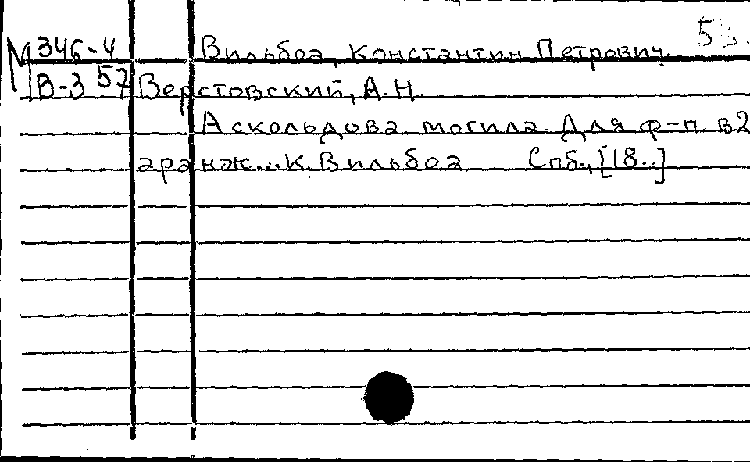 М 346-4 Вильбоа, Константин Петрович 53.
В-3 57 Верстовский, А.Н.
Аскольдова могила Для ф-п в2
аранж...К. Вильбоа Спб., [18..]